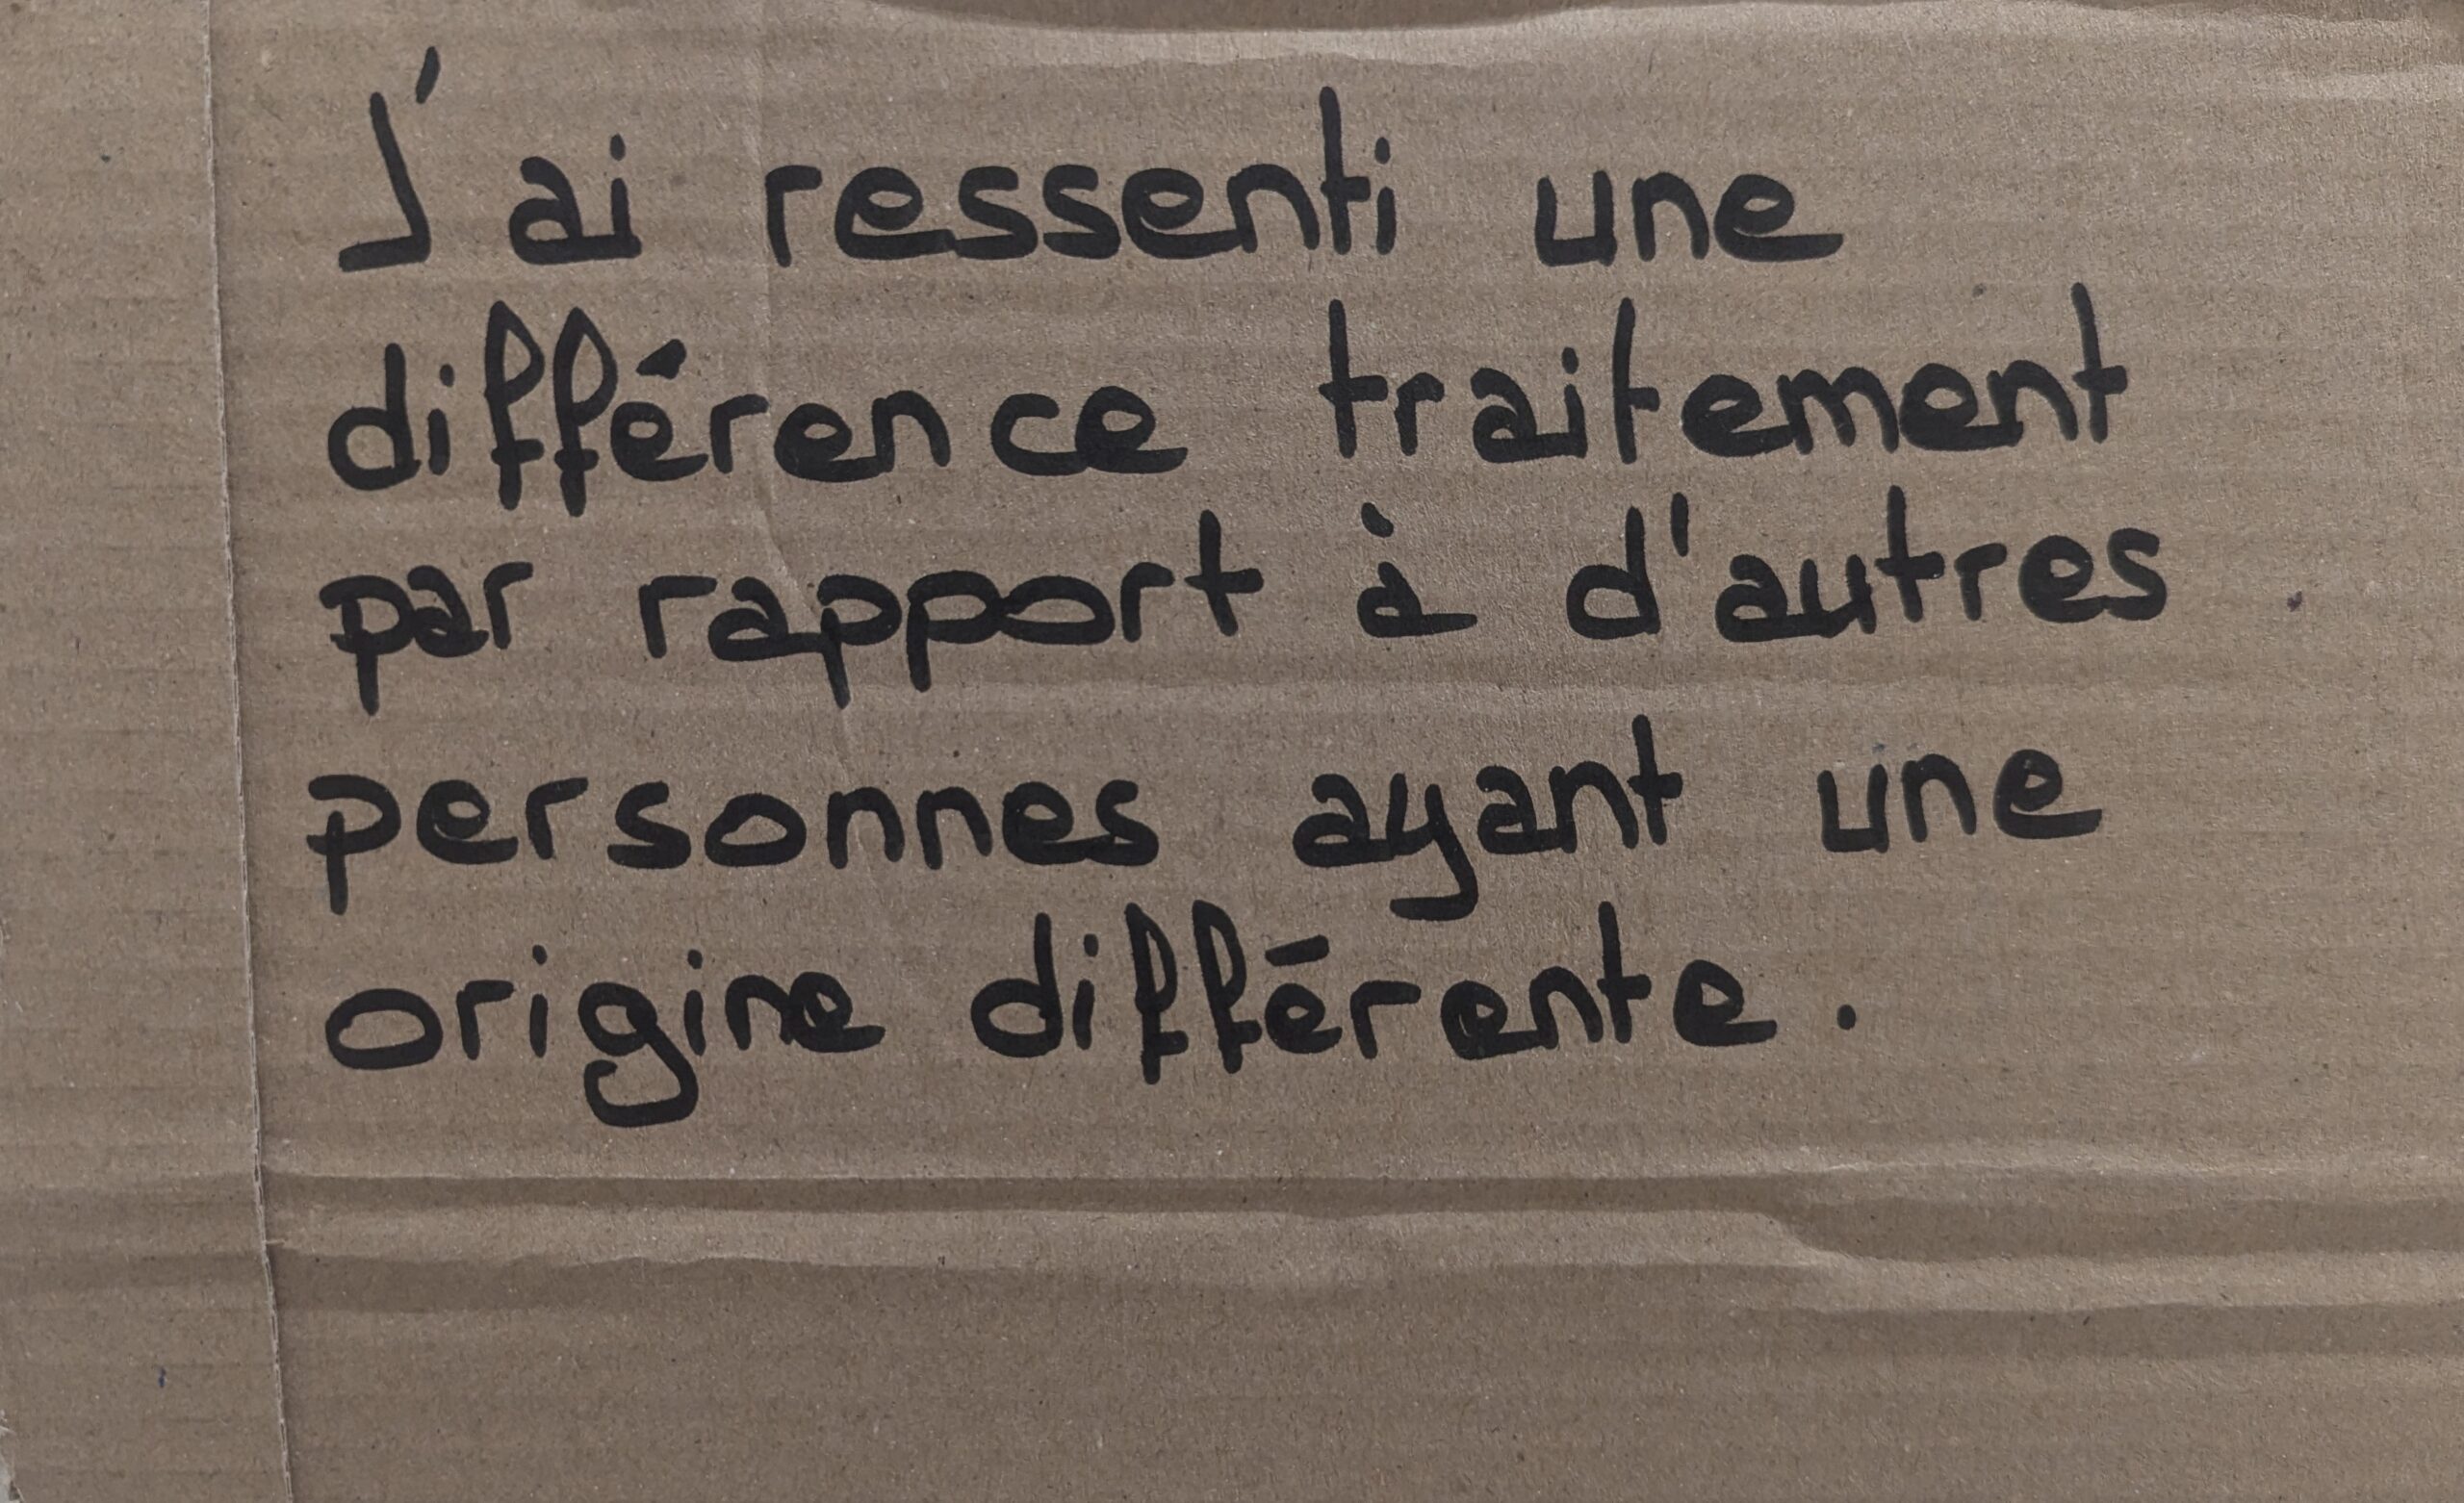 J'ai ressenti une
différence traitement
par rapport à d'autres
personnes ayant une
origine différente.